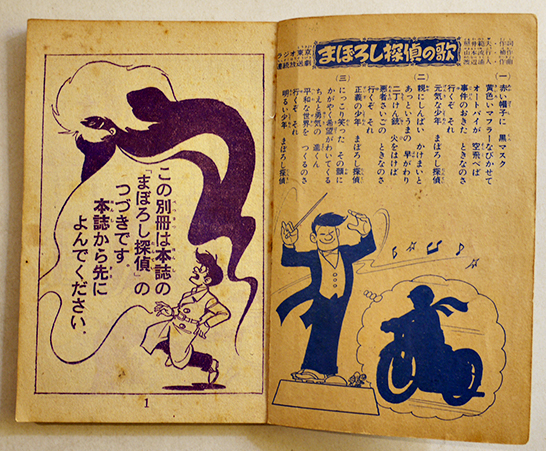 ラジオ東京
連続放送劇
まぼろし探偵の歌
(一)
赤い帽子に 黒マスク
黄色いマフラー なびかせて
オートバイが 空飛べば
事件のおきた ときなのさ
行くぞ それ
元気な少年 まぼろし探偵
(二)
親にしんぱい かけまいと
あっというまの 早がわり
二丁けん銃 火をはけば
悪者たいじの ときなのさ
行くぞ それ
正義の少年 まぼろし探偵
(三)
にっこり笑った その顔に
かがやく希望が わいてくる
ちえと勇気の 進くん
平和な世界を つくるのさ
行くぞ それ
明るい少年 まぼろし探偵
この別冊は本誌の
「まぼろし探偵」の
つづきです
本誌から先に
よんでください、
1